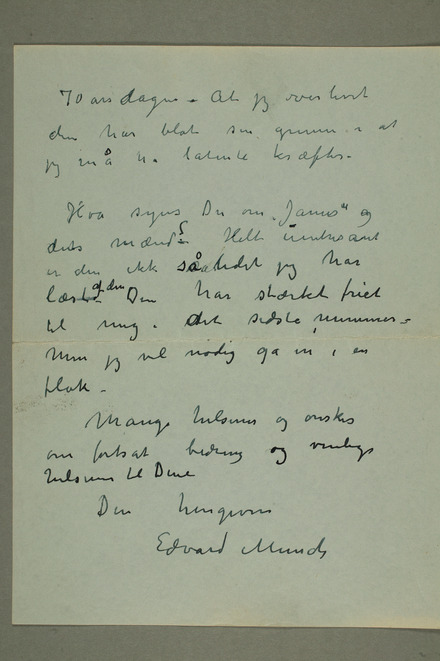 70 års dagen – At jeg overlevet
den har blot sin grunn i at
jeg må ha latente kræfter –
Hva synes Du om „Janus" og
dets mænd? – Helt uintresant
er den ikk såvidt jeg har
læst af den Den har stærket friet
til mig i det sidste nummer –
Men jeg vil nødig gå in i en
flok –
Mange hilsener og ønsker
om fortsat bedring og venlige
hilsener til Dine
Din hengivne
Edvard Munch